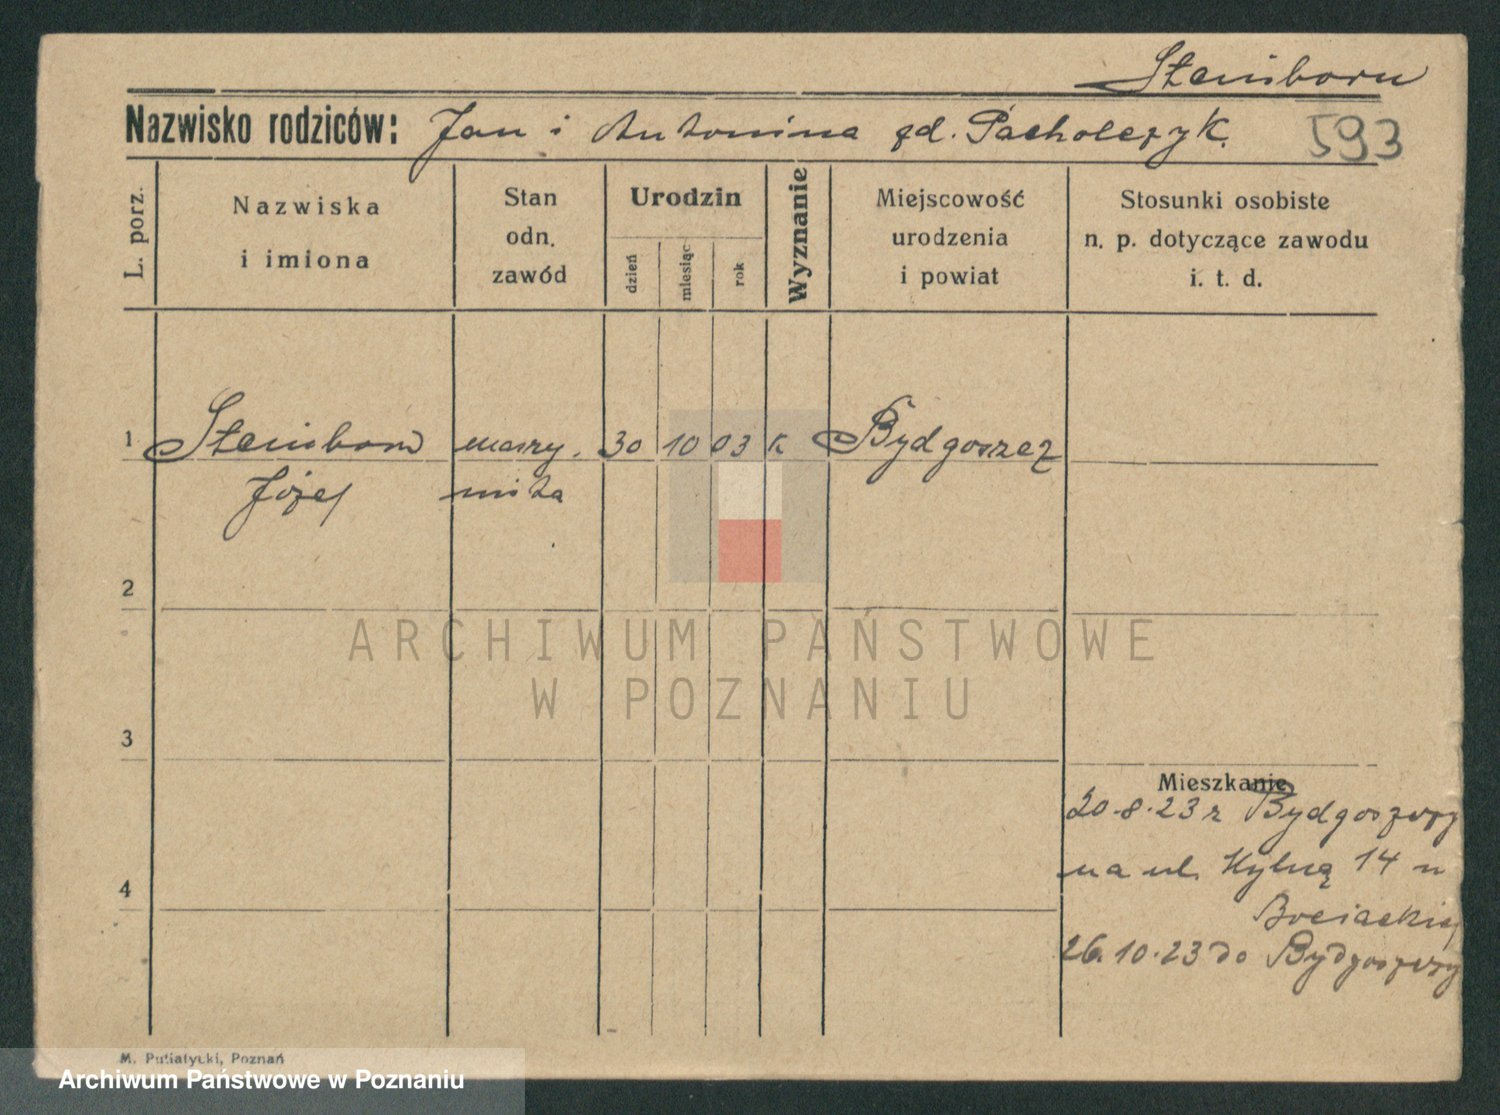 Steinborn
Nazwisko rodziców: Jan i Antonina zd. Pacholczyk. 593
L. porz.
Nazwiska
i imiona
Stan
odn.
zawód
Urodzin
dzień
miesiąc
rok
Wyznanie
Miejscowość
urodzenia
i powiat
Stosunki osobiste
n. p. dotyczące zawodu
i. t. d.
1 Steinborn maszy. 30 10 03 K Bydgoszcz
Józef nista
2
ARCHIWUM PAŃSTWOWE
W POZNANIU
3
Mieszkanie
20.8.23 z Bydgoszczy
na ul. 14 u
4
26.10.23 do Bydgoszczy
M. Putiatycki, Poznań
Archiwum Państwowe w Poznaniu